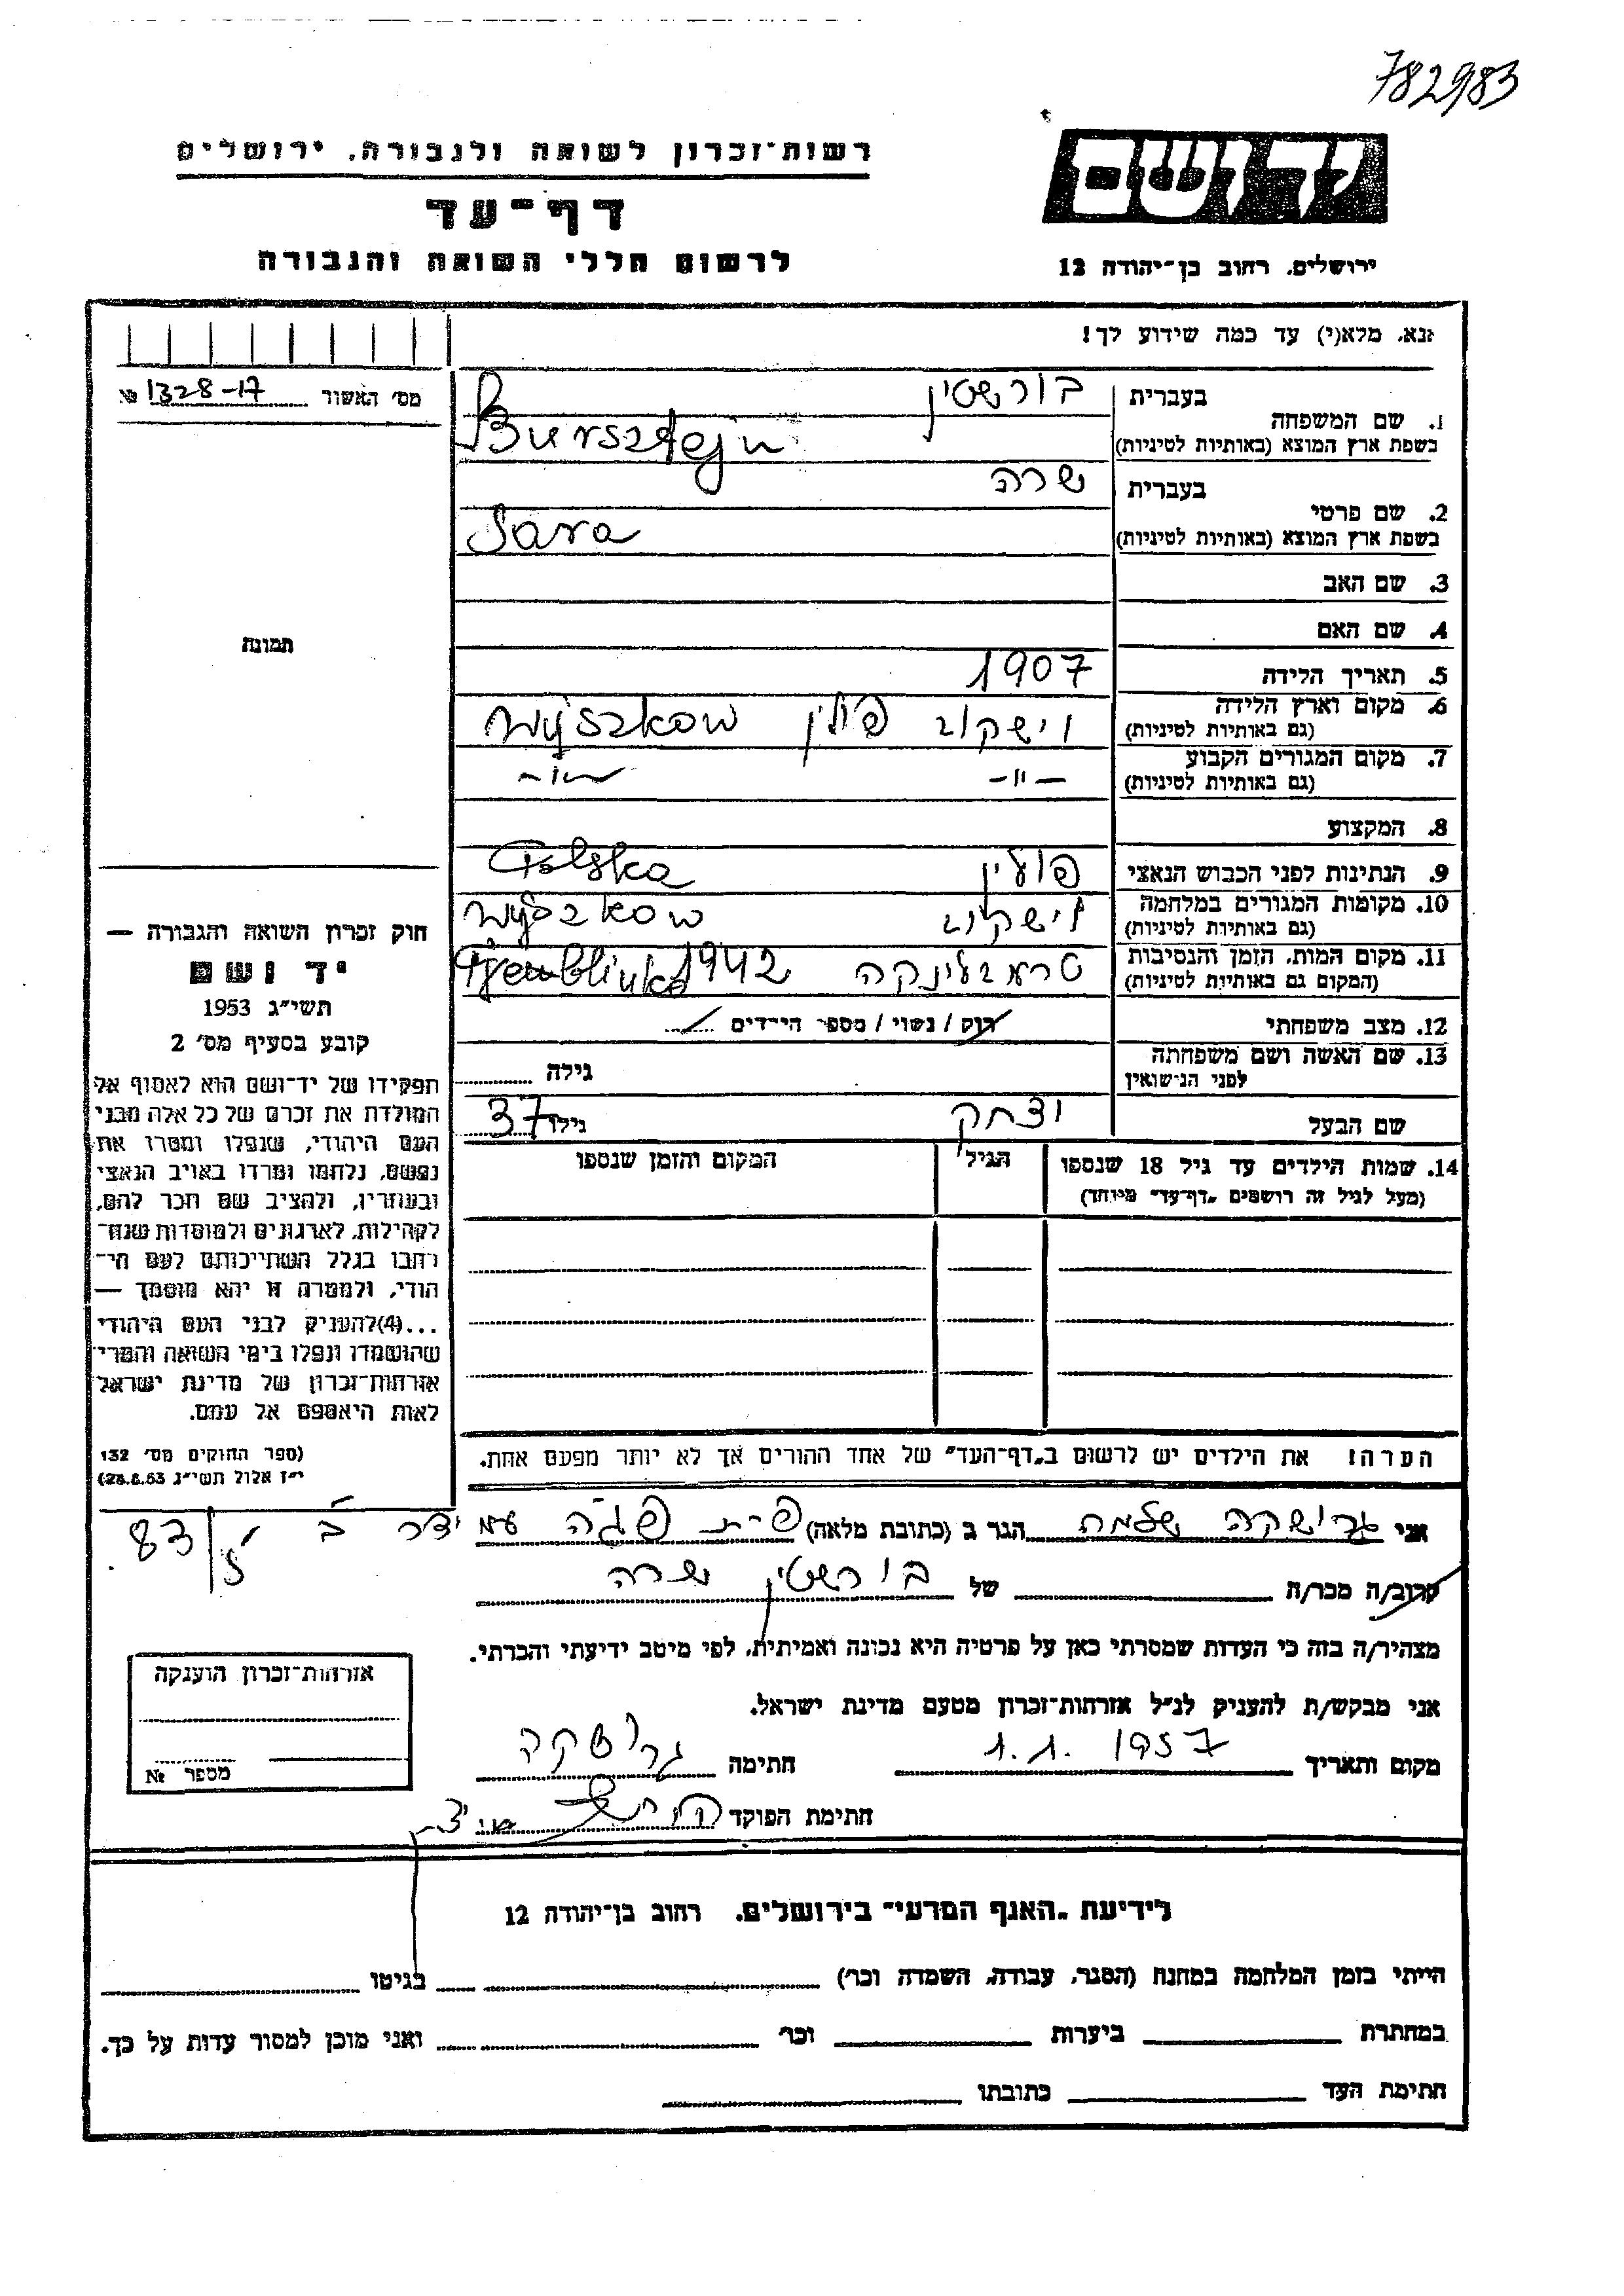 782983
יד ושם
רשות־זכרון לשואה ולגבורה, ירושלים
דף־עד
לרשום חללי השואה והגבורה
ירושלים, רחוב בן־יהודה 12
נא, מלא(י) עד כמה שידוע לך!
מס׳ האשור 1328-17 №
1. שם המשפחה
בעברית בורשטין
בשפת ארץ המוצא (באותיות לטיניות) Bursztejn
2. שם פרטי
בעברית שרה
בשפת ארץ המוצא (באותיות לטיניות) Sara
3. שם האב
4. שם האם
5. תאריך הלידה 1907
6. מקום וארץ הלידה
(גם באותיות לטיניות) וישקוב פולין Wyszkow
7. מקום המגורים הקבוע
(גם באותיות לטיניות) —״— —״—
8. המקצוע
9. הנתינות לפני הכבוש הנאצי פולין Polska
10. מקומות המגורים במלחמה
(גם באותיות לטיניות) וישקוב Wyszkow
11. מקום המות, הזמן והנסיבות
(המקום גם באותיות לטיניות) טרעבלינקה 1942
12. מצב משפחתי רוק / נשוי / מספר הילדים
13. שם האשה ושם משפחתה
לפני הנישואין גילה
שם הבעל יצחק גילו 37
14. שמות הילדים עד גיל 18 שנספו
(מעל לגיל זה רושמים „דף־עד״ מיוחד)
הגיל
המקום והזמן שנספו
הערה! את הילדים יש לרשום ב„דף־העד״ של אחד ההורים אך לא יותר מפעם אחת.
תמונה
חוק זכרון השואה והגבורה —
יד ושם
תשי״ג 1953
קובע בסעיף מס׳ 2
תפקידו של יד־ושם הוא לאסוף אל
המולדת את זכרם של כל אלה מבני
העם היהודי, שנפלו ומסרו את
נפשם, נלחמו ומרדו באויב הנאצי
ובעוזריו, ולהציב שם וזכר להם,
לקהילות, לארגונים ולמוסדות שנח־
רבו בגלל השתייכותם לעם הי־
הודי, ולמטרה זו יהא מוסמך —
...(4)להעניק לבני העם היהודי
שהושמדו ונפלו בימי השואה והמרי־
אזרחות־זכרון של מדינת ישראל
לאות היאספם אל עמם.
(ספר החוקים מס׳ 132
י״ז אלול תשי״ג 28.8.53)
אני גרושקה שלמה הגר ב (כתובת מלאה)
83/5
קרוב/ה מכר/ה של בורשטין שרה
מצהיר/ה בזה כי העדות שמסרתי כאן על פרטיה היא נכונה ואמיתית, לפי מיטב ידיעתי והכרתי.
אני מבקש/ת להעניק לנ״ל אזרחות־זכרון מטעם מדינת ישראל.
מקום ותאריך 1.1. 1957 חתימה גרושקה
חתימת הפוקד
אזרחות־זכרון הוענקה
מספר №
לידיעת „האגף המדעי״ בירושלים, רחוב בן־יהודה 12
הייתי בזמן המלחמה במחנה (הסגר, עבודה, השמדה וכר׳) בגיטו
במחתרת ביערות וכר׳ ואני מוכן למסור עדות על כך.
חתימת העד כתובתו